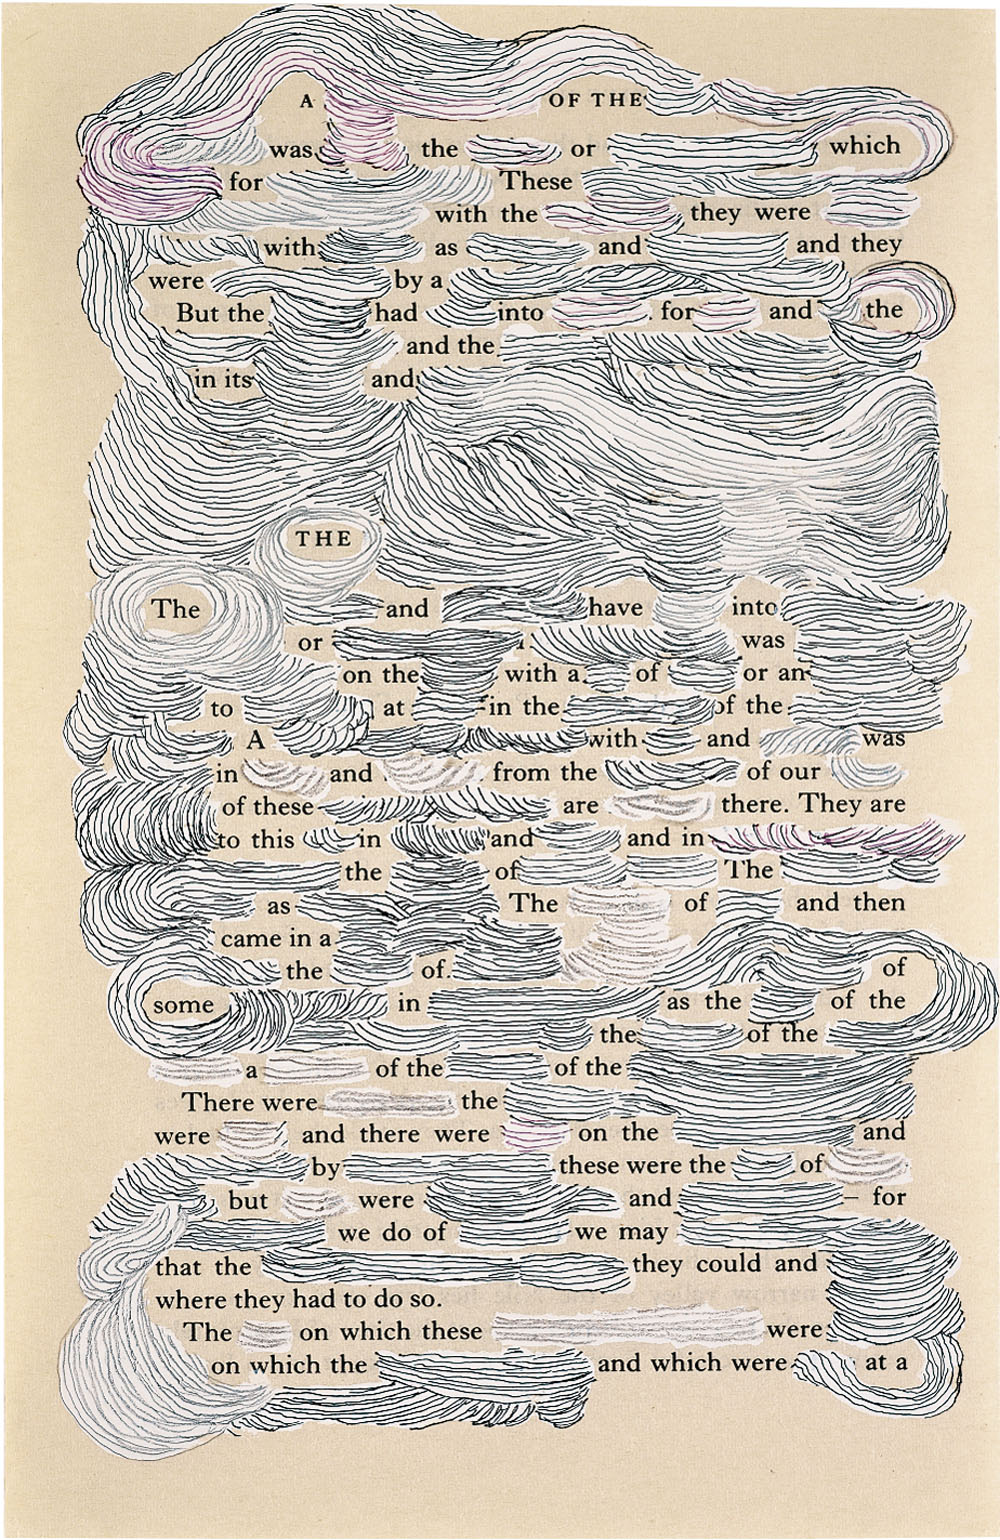 A OF THE
was the or which
for These
with the they were
with as and and they
were by a
But the had into for and the
and the
in its and
THE
The and have into
or was
on the with a of or an
to at in the of the
A with and was
in and from the of our
of these are there. They are
to this in and and in
the of The
as The of and then
came in a
the of. of
some in as the of the
the of the
a of the of the
There were the
were and there were on the and
by these were the of
but were and – for
we do of we may
that the they could and
where they had to do so.
The on which these were
on which the and which were at a